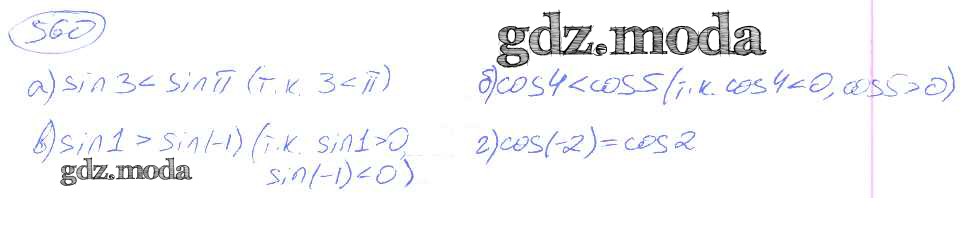 560
gdz.moda
а) sin 3 < sin π (т.к. 3 < π)
б) cos 4 < cos 5 (т.к. cos 4 < 0, cos 5 > 0)
в) sin 1 > sin(-1) (т.к. sin 1 > 0,
sin(-1) < 0)
г) cos(-2) = cos 2
gdz.moda